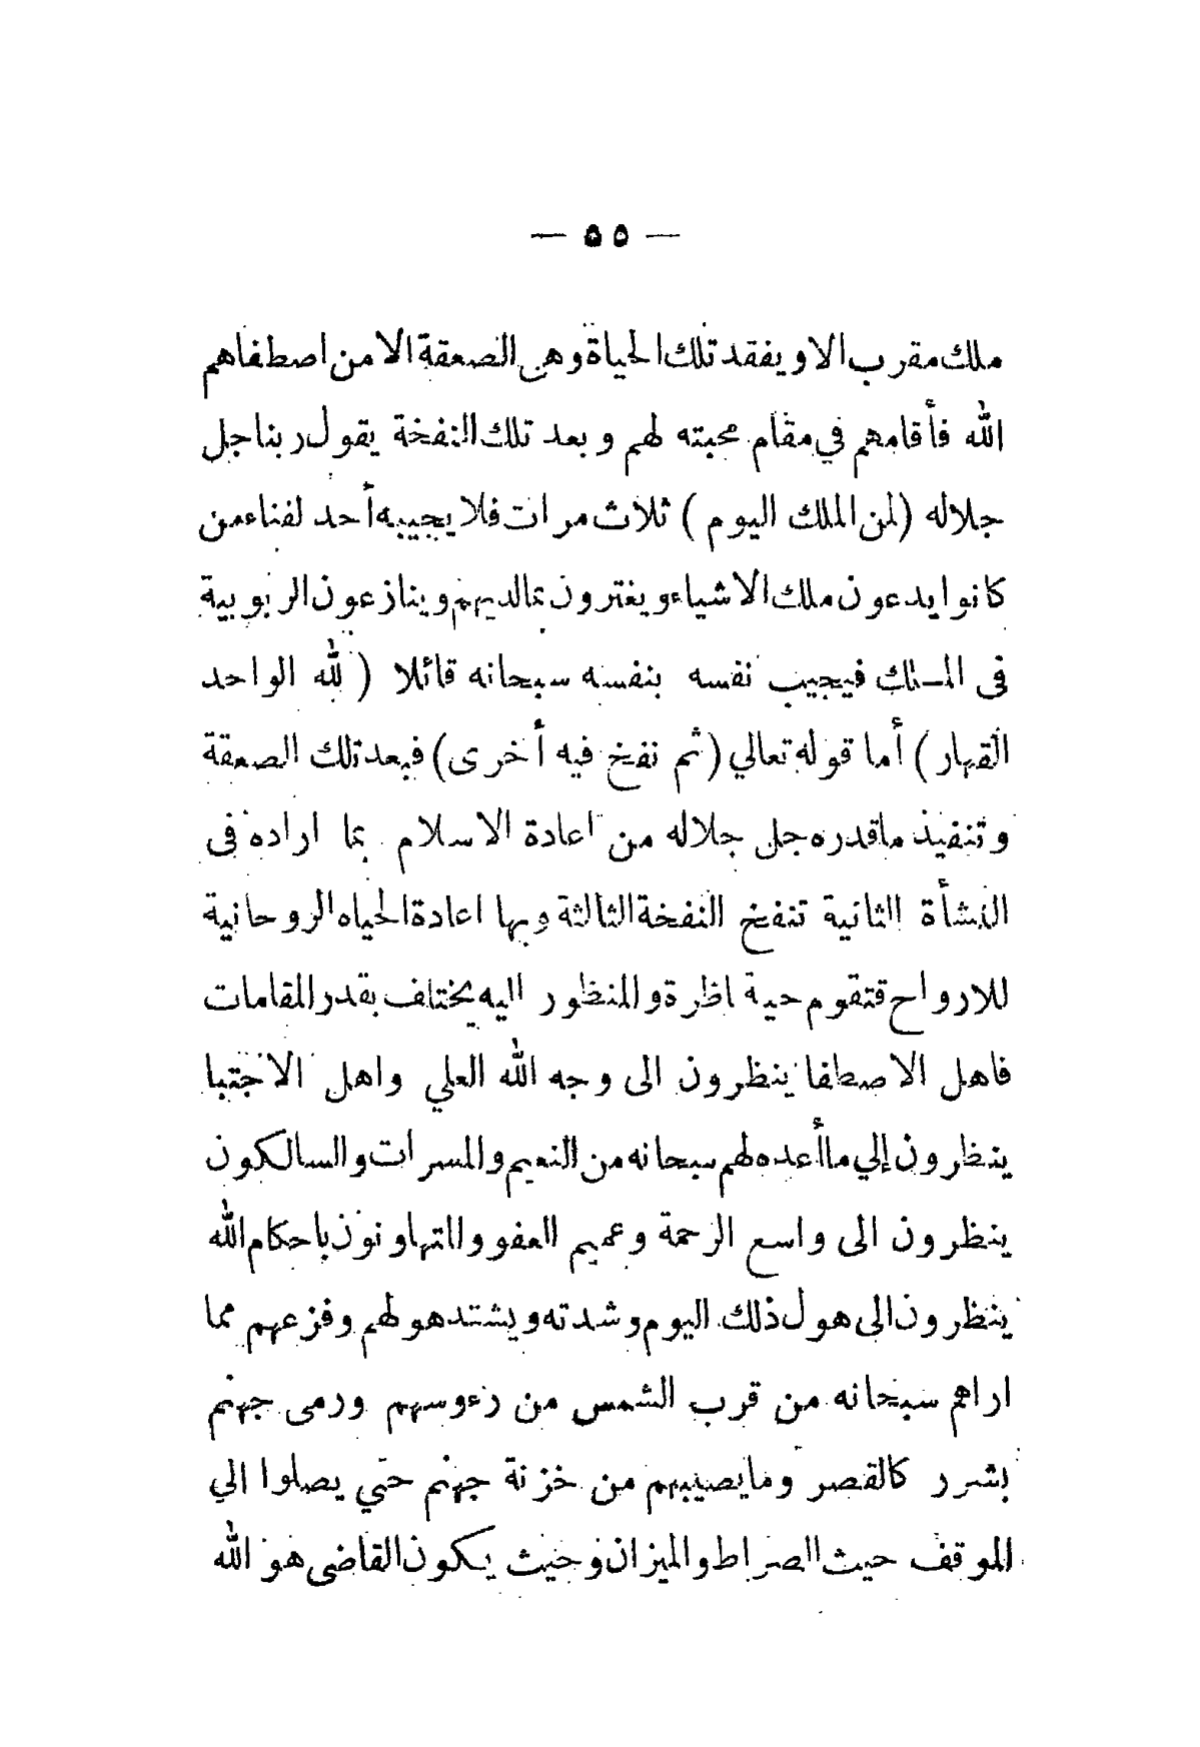 — ٥٥ —
ملك مقرب الا ويفقد تلك الحياة وهى الصعقة الا من اصطفاهم
الله فأقامهم في مقام محبته لهم وبعد تلك النفخة يقول ربنا جل
جلاله (لمن الملك اليوم) ثلاث مرات فلا يجيبه أحد لفناء من
كانوا يدعون ملك الاشياء ويغترون بمالديهم وينازعون الربوبية
فى الملك فيجيب نفسه بنفسه سبحانه قائلا (لله الواحد
القهار) أما قوله تعالي (ثم نفخ فيه أخرى) فبعد تلك الصعقة
وتنفيذ ماقدره جل جلاله من اعادة الاسلام بما اراده فى
النشأة الثانية تنفخ النفخة الثالثة وبها اعادة الحياه الروحانية
للارواح فتقوم حية اظرة والمنظور اليه يختلف بقدر المقامات
فاهل الاصطفا ينظرون الى وجه الله العلي واهل الاجتبا
ينظرون إلي ماأعده لهم سبحانه من النعيم والمسرات والسالكون
ينظرون الى واسع الرحمة وعميم العفو والمتهاونون باحكام الله
ينظرون الى هول ذلك اليوم وشدته ويشتد هولهم وفزعهم مما
اراهم سبحانه من قرب الشمس من رءوسهم ورمى جهنم
بشرر كالقصر ومايصيبهم من خزنة جهنم حتي يصلوا الي
الموقف حيث الصراط والميزان وحيث يكون القاضى هو الله